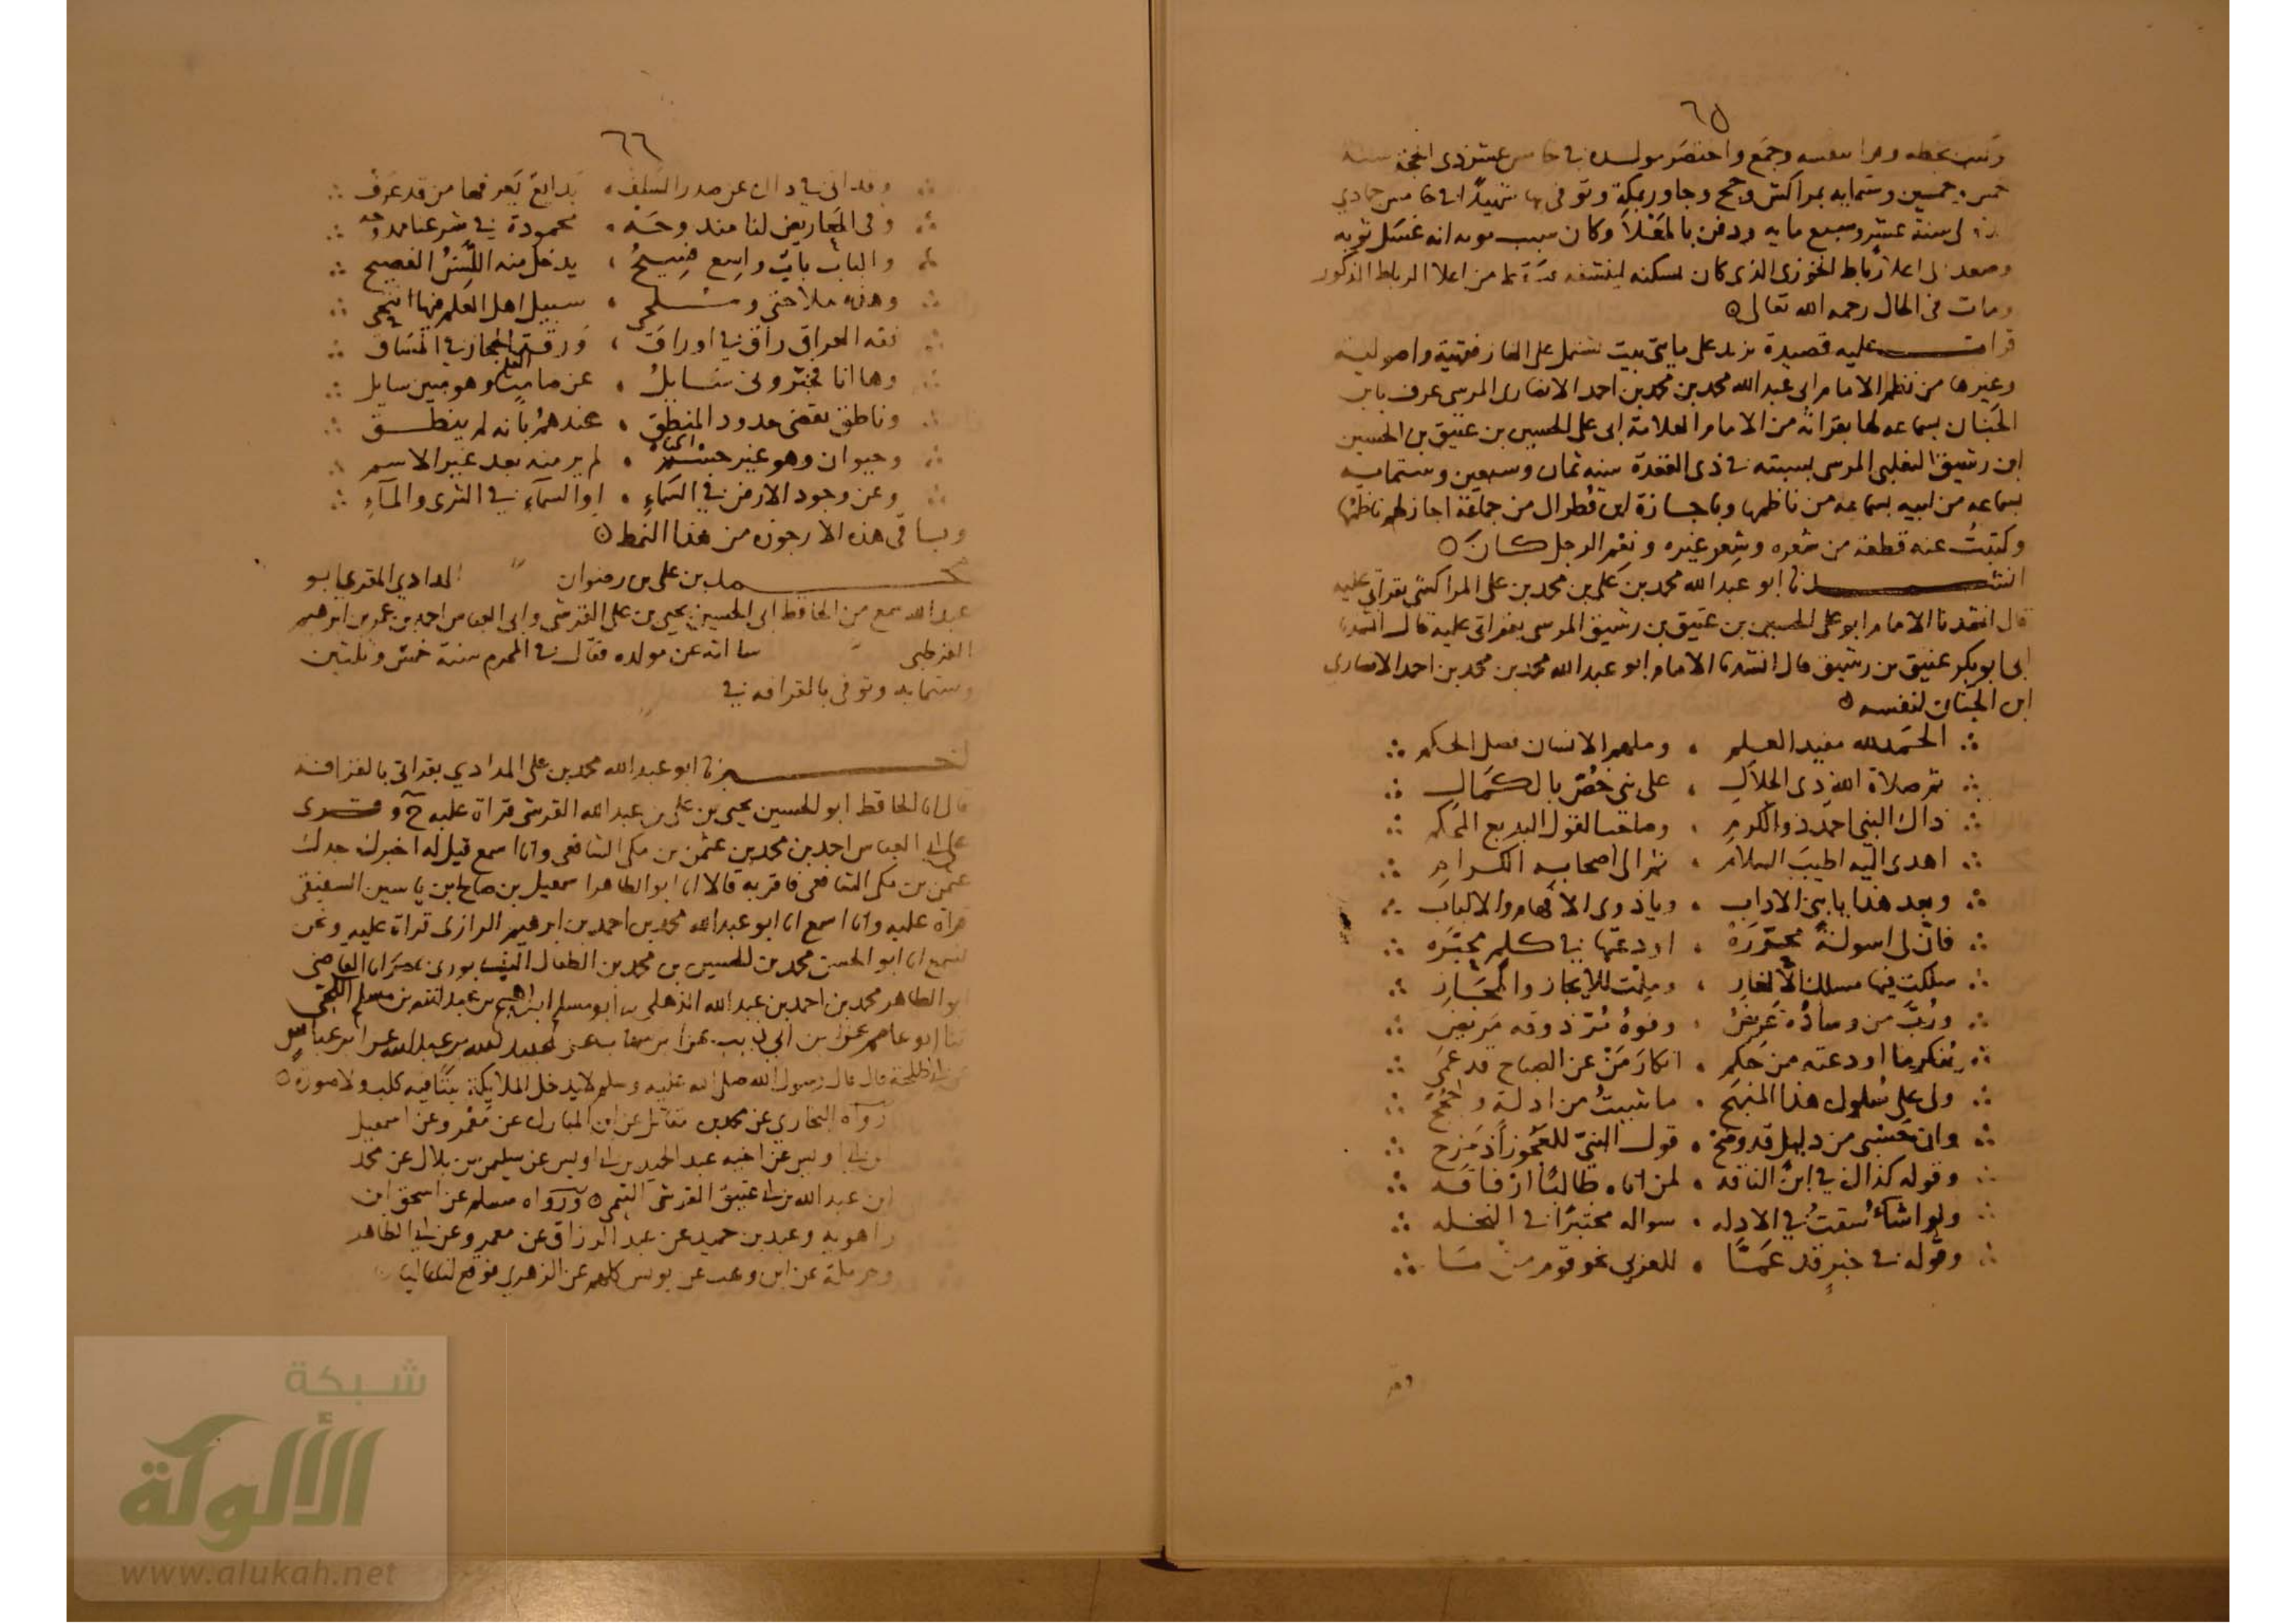 ٦٥
وكتب بخطه وقرا بنفسه وجمع واختصر مولده في خامس عشر ذي الحجة سنة
خمس وخمسين وستمايه بمراكش وحج وجاور بمكة وتوفى بها شهيدًا في خامس جمادي
سنة عشر وسبع مايه ودفن بالمَعْلَا وكان سبب موته انه غسل ثوبه
وصعد الى اعلا رباط الخوزى الذى كان يسكنه لينشفه من اعلا الرباط المذكور
ومات في الحال رحمه الله تعالى ه
قرات عليه قصيدة تزيد على مايتى بيت تشتمل على الغاز فقهية واصولية
وغيرها من نظم الامام ابى عبد الله محمد بن محمد بن احمد الانصارى المرسى عرف بابن
الجنان بسماعه لها بقراته من الامام العلامة ابى على الحسين بن عتيق بن الحسين
ابن رشيق التغلبى المرسى بسبته في ذى القعدة سنه ثمان وسبعين وستمايه
بسماعه من ابيه بسماعه من ناظمها وباجازة ابن قُطرال من جماعة اجاز لهم ناظمها
وكتبتُ عنه قطعة من شعره وشعر غيره ونعم الرجل كان ه
انشدنا ابو عبد الله محمد بن على بن محمد بن على المراكشي بقراتى عليه
قال انشدنا الامام ابو على الحسين بن عتيق بن رشيق المرسى بقراتى عليه قال انشدنا
ابى ابو بكر عتيق بن رشيق قال انشدنا الامام ابو عبد الله محمد بن محمد بن احمد الانصاري
ابن الجنان لنفسه ه
الحمد لله مفيد العلم ، وملهم الانسان فصل الحكم
ثم صلاة الله ذى الجلال ، على نبى خُصّ بالكمال
ذاك النبى احمد ذو الكرم ، وصاحب القول البديع المحكم
اهدى اليه اطيبَ السلام ، ثم الى اصحابه الكرام
وبعد هذا يا بنى الاداب ، ويا ذوى الافهام والالباب
فانّ لى اسولةً محررَهْ ، اودعتها في كلم محبَّره
سلكت فيها مسلك الالغاز ، وملت للايجاز والمجاز
ورُبَّ من وساده عَريضُ ، وفوهُ مُرّ ذوقه مَريض
ينكر ما اودعته من حَكِم ، انكارَ مَنْ عن الصباح قد عمى
ولى على سُلوك هذا المنهج ، ما شيتُ من ادلة وحُجج
وان حسبى من دليل قد وضح ، قول النبىّ للعجوز اذ مَزح
وقوله كذاك في ابن الناقه ، لمن اتاه طالبًا ارفاقه
ولو اشاء سُقتُ في الادله ، سواله مختبرًا في النخله
وقوله في خبرٍ قد عمّا ، للعزبى نحو قوم من
٦٦
وقد اتى في ذاك عن صدر السَّلف ، بدايعٌ يَعرفها من قد عَرف
وفى المعاريض لنا مندوحَه ، محمودة في شرعنا ممدوحه
والباب بابٌ واسع فسيحُ ، يدخل منه اللَّسِنُ الفصيح
وهذه ملاحتى ومُلَحى ، سبيل اهل العلم فيها انتحى
فقه العراق راق في اوراق ، ورقة الحجاز في المساق
وها انا مخبّرونى سَايلُ ، عن صامتٍ وهو مبين سايل
وناطق تقضى حدود المنطق ، عندهمُ بانه لم ينطق
وحيوان وهو غير جسم ، لم ير منه بعد غير الاسم
وعن وجود الارض في السماءِ ، او السماءِ في الثرى والماءِ
وباقى هذه الارجوزه من هذا النمط ه
محمد بن على بن رضوان المدادي المقري ابو
عبد الله سمع من الحافظ ابى الحسين يحيى بن على القرشى وابى العباس احمد بن عمر بن ابرهيم
القرطبى سالته عن مولده فقال في المحرم سنة خمس وثلثين
وستمايه وتوفى بالقرافه في
اخبرنا ابو عبد الله محمد بن على المدادي بقراتى بالقرافة
قال انا الحافظ ابو الحسين يحيى بن على بن عبد الله القرشى قراة عليه ح وقرى
على ابى العباس احمد بن محمد بن عثمن بن مكى الشافعى وانا اسمع قيل له اخبرك جدك
عثمن بن مكى الشافعى فاقر به قالا انا ابو الطاهر اسمعيل بن صالح بن ياسين الشفيقى
قراة عليه وانا اسمع انا ابو عبد الله محمد بن احمد بن ابرهيم الرازى قراة عليه ونحن
نسمع انا ابو الحسن محمد بن الحسين بن محمد بن الطفال النيسابورى بمصر انا القاضى
ابو الطاهر محمد بن احمد بن عبد الله الذهلى نا ابو مسلم ابراهيم بن عبد الله بن مسلم الكجي
ثنا ابو عاصم عن ابن ابى ذيب عن ابن شهاب عن عبيد الله بن عبد الله عن ابن عباس
عن ابى طلحة قال قال رسول الله صلى الله عليه وسلم لا يدخل الملايكة بيتًا فيه كلب ولا صورة ه
رواه البخاري عن محمد بن مقاتل عن ابن المبارك عن مَعْمر وعن اسمعيل
ابن ابى اويس عن اخيه عبد الحميد بن ابى اويس عن سليمن بن بلال عن محمد
ابن عبد الله بن ابى عتيق القرشى التيمى ه ورواه مسلم عن اسحق ابن
راهويه وعبد بن حميد عن عبد الرزاق عن معمر وعن ابى الطاهر
وحرملة عن ابن وهب عن يونس كلهم عن الزهرى فوقع لنا عاليا
شبكة
الألوكة
www.alukah.net